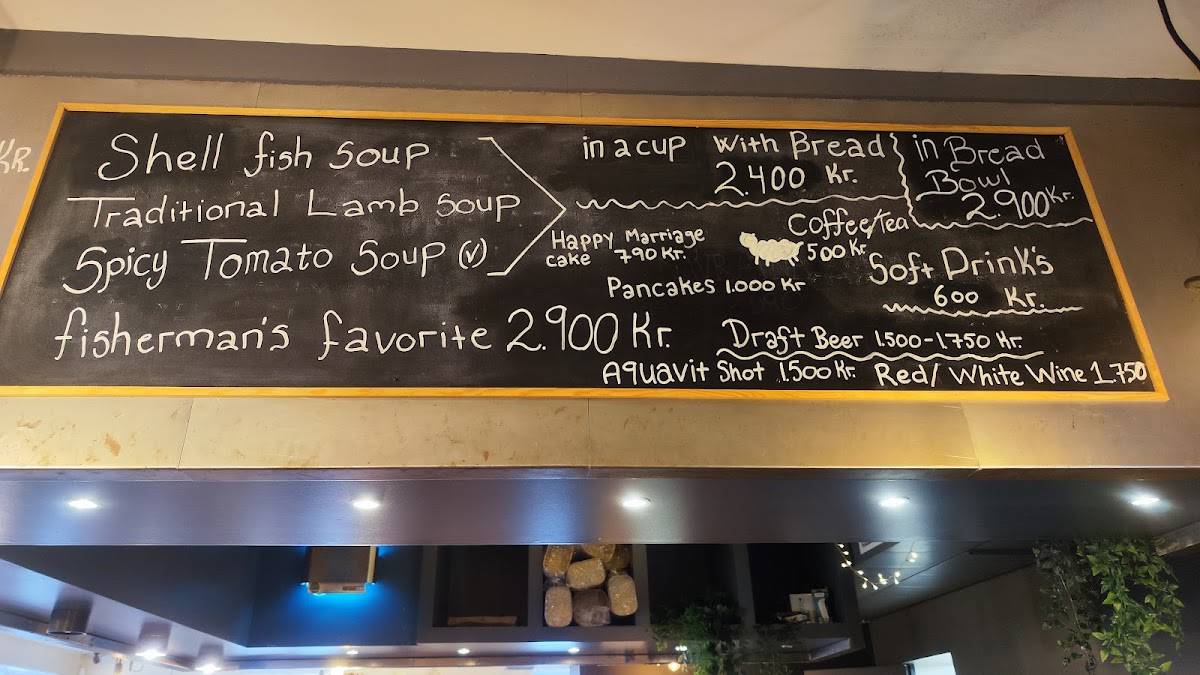 KR.
Shell fish Soup
Traditional Lamb Soup
Spicy Tomato Soup (v)
in a cup With Bread
2.400 Kr.
in Bread
Bowl
2.900 Kr.
Happy Marriage
cake 790 Kr.
Coffee/tea
500 Kr.
Pancakes 1.000 Kr
Soft Drink's
600 Kr.
fisherman's favorite 2.900 Kr.
Draft Beer 1.500-1.750 Kr.
Aquavit Shot 1.500 Kr. Red/ White Wine 1.750